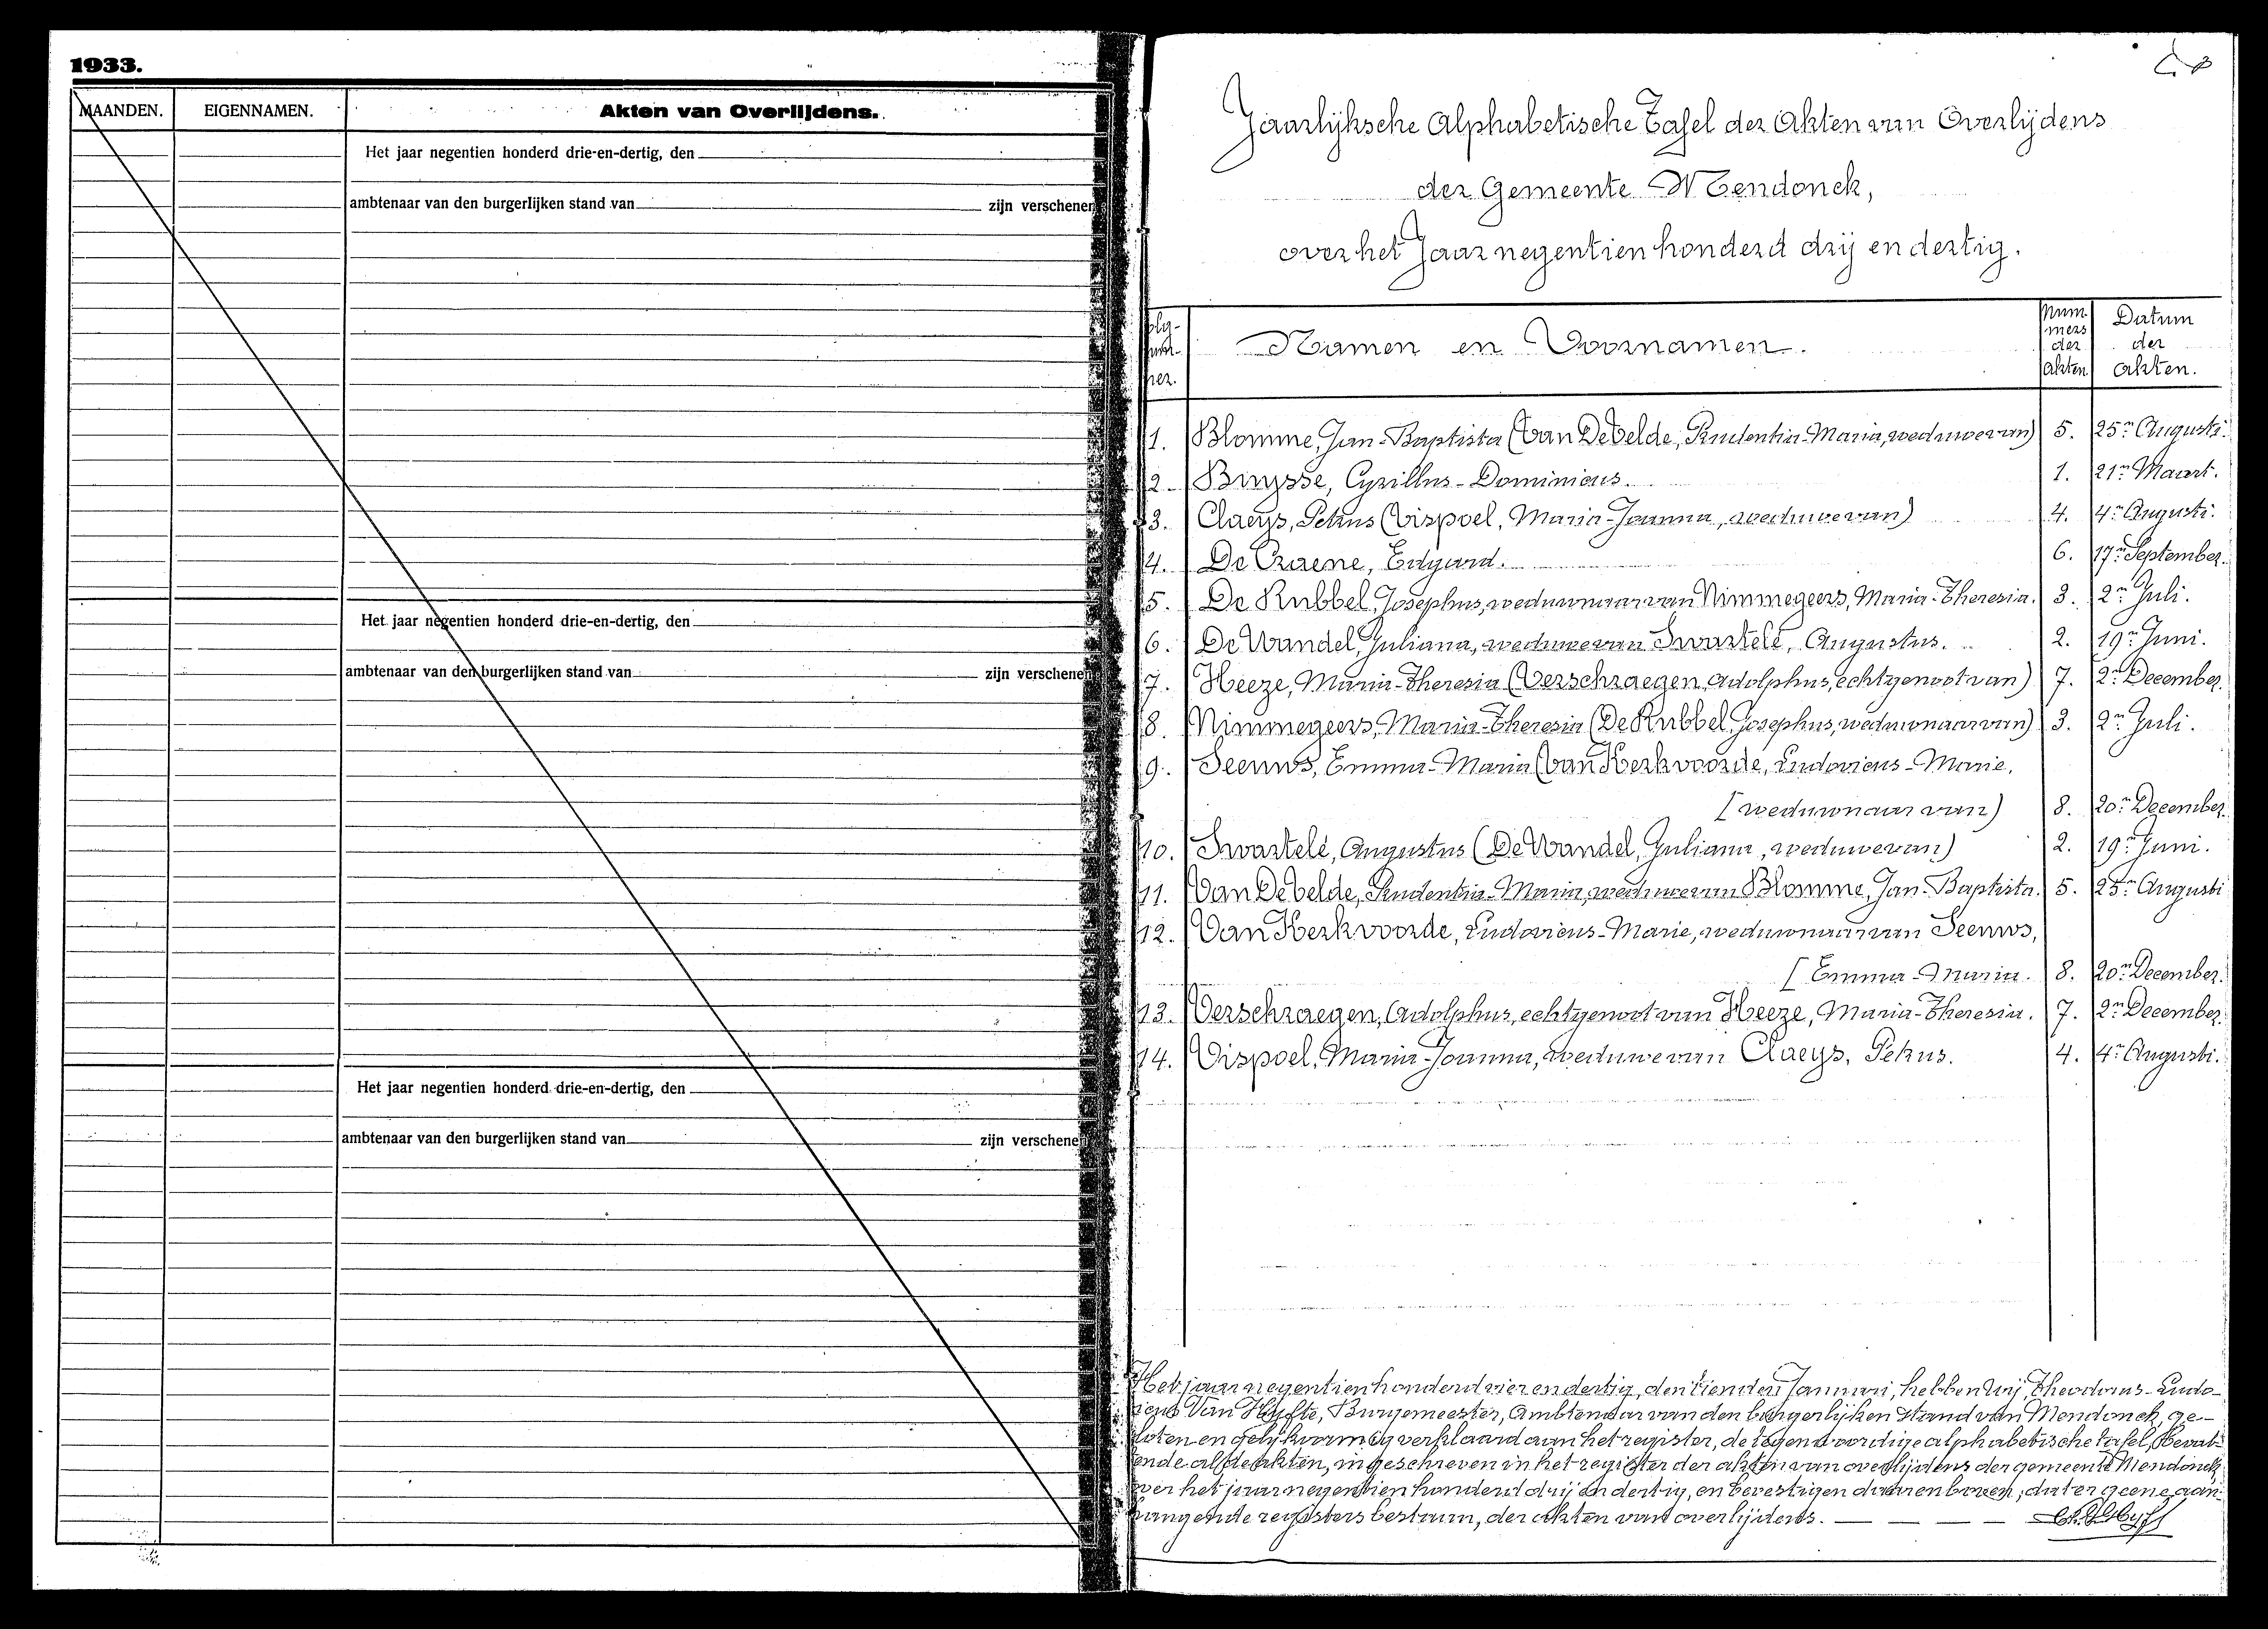 1933.
MAANDEN.
EIGENNAMEN.
Akten van Overlijdens.
Het jaar negentien honderd drie-en-dertig, den
ambtenaar van den burgerlijken stand van zijn verschenen
Het jaar negentien honderd drie-en-dertig, den
ambtenaar van den burgerlijken stand van zijn verschenen
Het jaar negentien honderd drie-en-dertig, den
ambtenaar van den burgerlijken stand van zijn verschenen
Jaarlijksche Alphabetische Tafel der Akten van Overlijdens
der Gemeente Mendonck,
over het Jaar negentien honderd drij en dertig.
Namen en Voornamen.
Nummers der Akten
Datum der akten.
1. Blomme, Jan-Baptista (Van De Velde, Prudentia-Maria, weduwe van) 5. 25n Augusti.
2. Bruysse, Cyrillus-Dominicus. 1. 21n Maart.
3. Claeys, Petrus (Vispoel, Maria-Joanna, weduwe van) 4. 4n Augusti.
4. De Craene, Edgard. 6. 17n September.
5. De Rubbel, Josephus, weduwnaar van Nimmegeers, Maria-Theresia. 3. 2n Juli.
6. De Wandel, Juliana, weduwe van Swartelé, Augustus. 2. 19n Juni.
7. Heeze, Maria-Theresia (Verschraegen, Adolphus, echtgenoot van) 7. 2n December.
8. Nimmegeers, Maria-Theresia (De Rubbel, Josephus, weduwnaar van) 3. 2n Juli.
9. Seeuws, Emma-Maria (Van Kerkvoorde, Ludovicus-Marie,
[weduwnaar van) 8. 20n December.
10. Swartelé, Augustus (De Wandel, Juliana, weduwe van) 2. 19n Juni.
11. Van De Velde, Prudentia-Maria, weduwe van Blomme, Jan-Baptista. 5. 25n Augusti
12. Van Kerkvoorde, Ludovicus-Marie, weduwnaar van Seeuws,
[Emma-Maria. 8. 20n December.
13. Verschraegen, Adolphus, echtgenoot van Heeze, Maria-Theresia. 7. 2n December.
14. Vispoel, Maria-Joanna, weduwe van Claeys, Petrus. 4. 4n Augusti.
Het jaar negentien honderd vier en dertig, den tienden Januari, hebben Wij, Theodorus-Ludo-
icus Van Hyfte, Burgemeester, Ambtenaar van den burgerlijken stand van Mendonck, ge-
loten en gelijkvormig verklaard aan het register, de tegenwoordige alphabetische tafel, bevat-
ende al de akten, ingeschreven in het register der akten van overlijdens der gemeente Mendonck
over het jaar negentien honderd drij en dertig, en bevestigen daarenboven, dat er geene aan-
hangende registers bestaan, der akten van overlijdens.